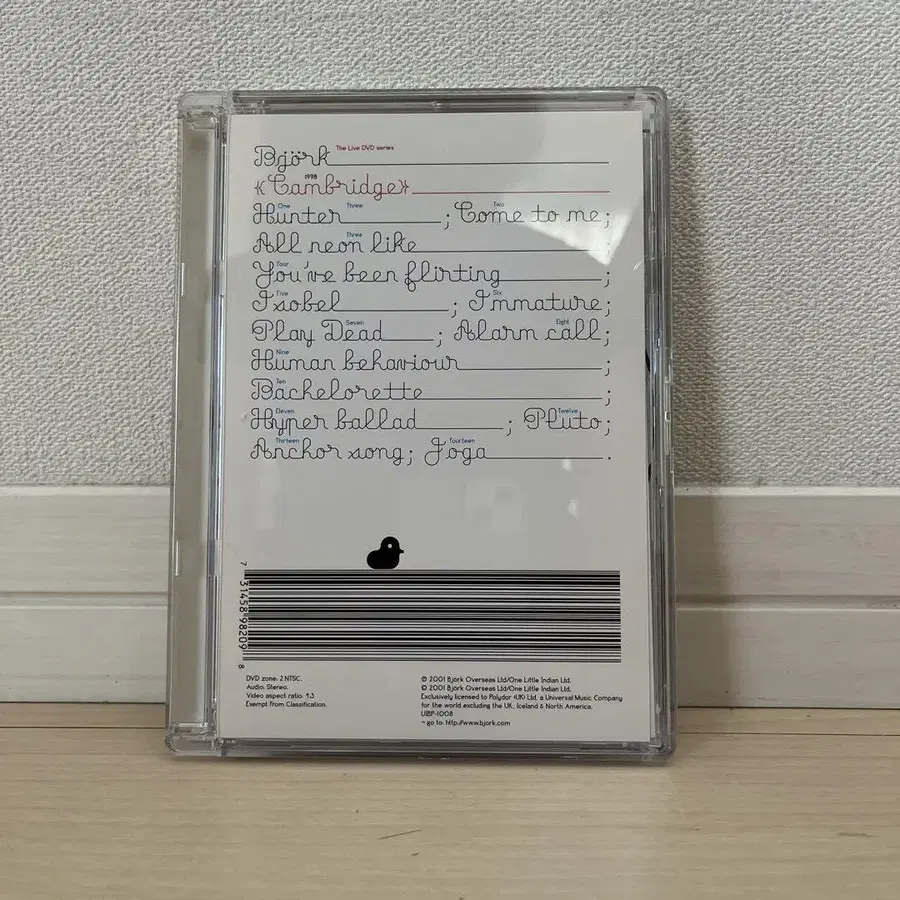 Björk The Live DVD series
«Cambridge» 1998
One Hunter Three ; Two Come to me;
Three All neon like ;
Four You've been flirting ;
Five Isobel ; Six Immature;
Seven Play Dead ; Eight Alarm call;
Nine Human behaviour ;
Ten Bachelorette ;
Eleven Hyper ballad ; Twelve Pluto;
Thirteen Anchor song; Fourteen Joga .
7 31458 98209 8
DVD zone: 2 NTSC.
Audio: Stereo.
Video aspect ratio: 4:3
Exempt from Classification.
© 2001 Björk Overseas Ltd/One Little Indian Ltd.
© 2001 Björk Overseas Ltd/One Little Indian Ltd.
Exclusively licensed to Polydor (UK) Ltd, a Universal Music Company
for the world excluding the UK, Iceland & North America.
UIBP-1008
¬ go to: http://www.bjork.com